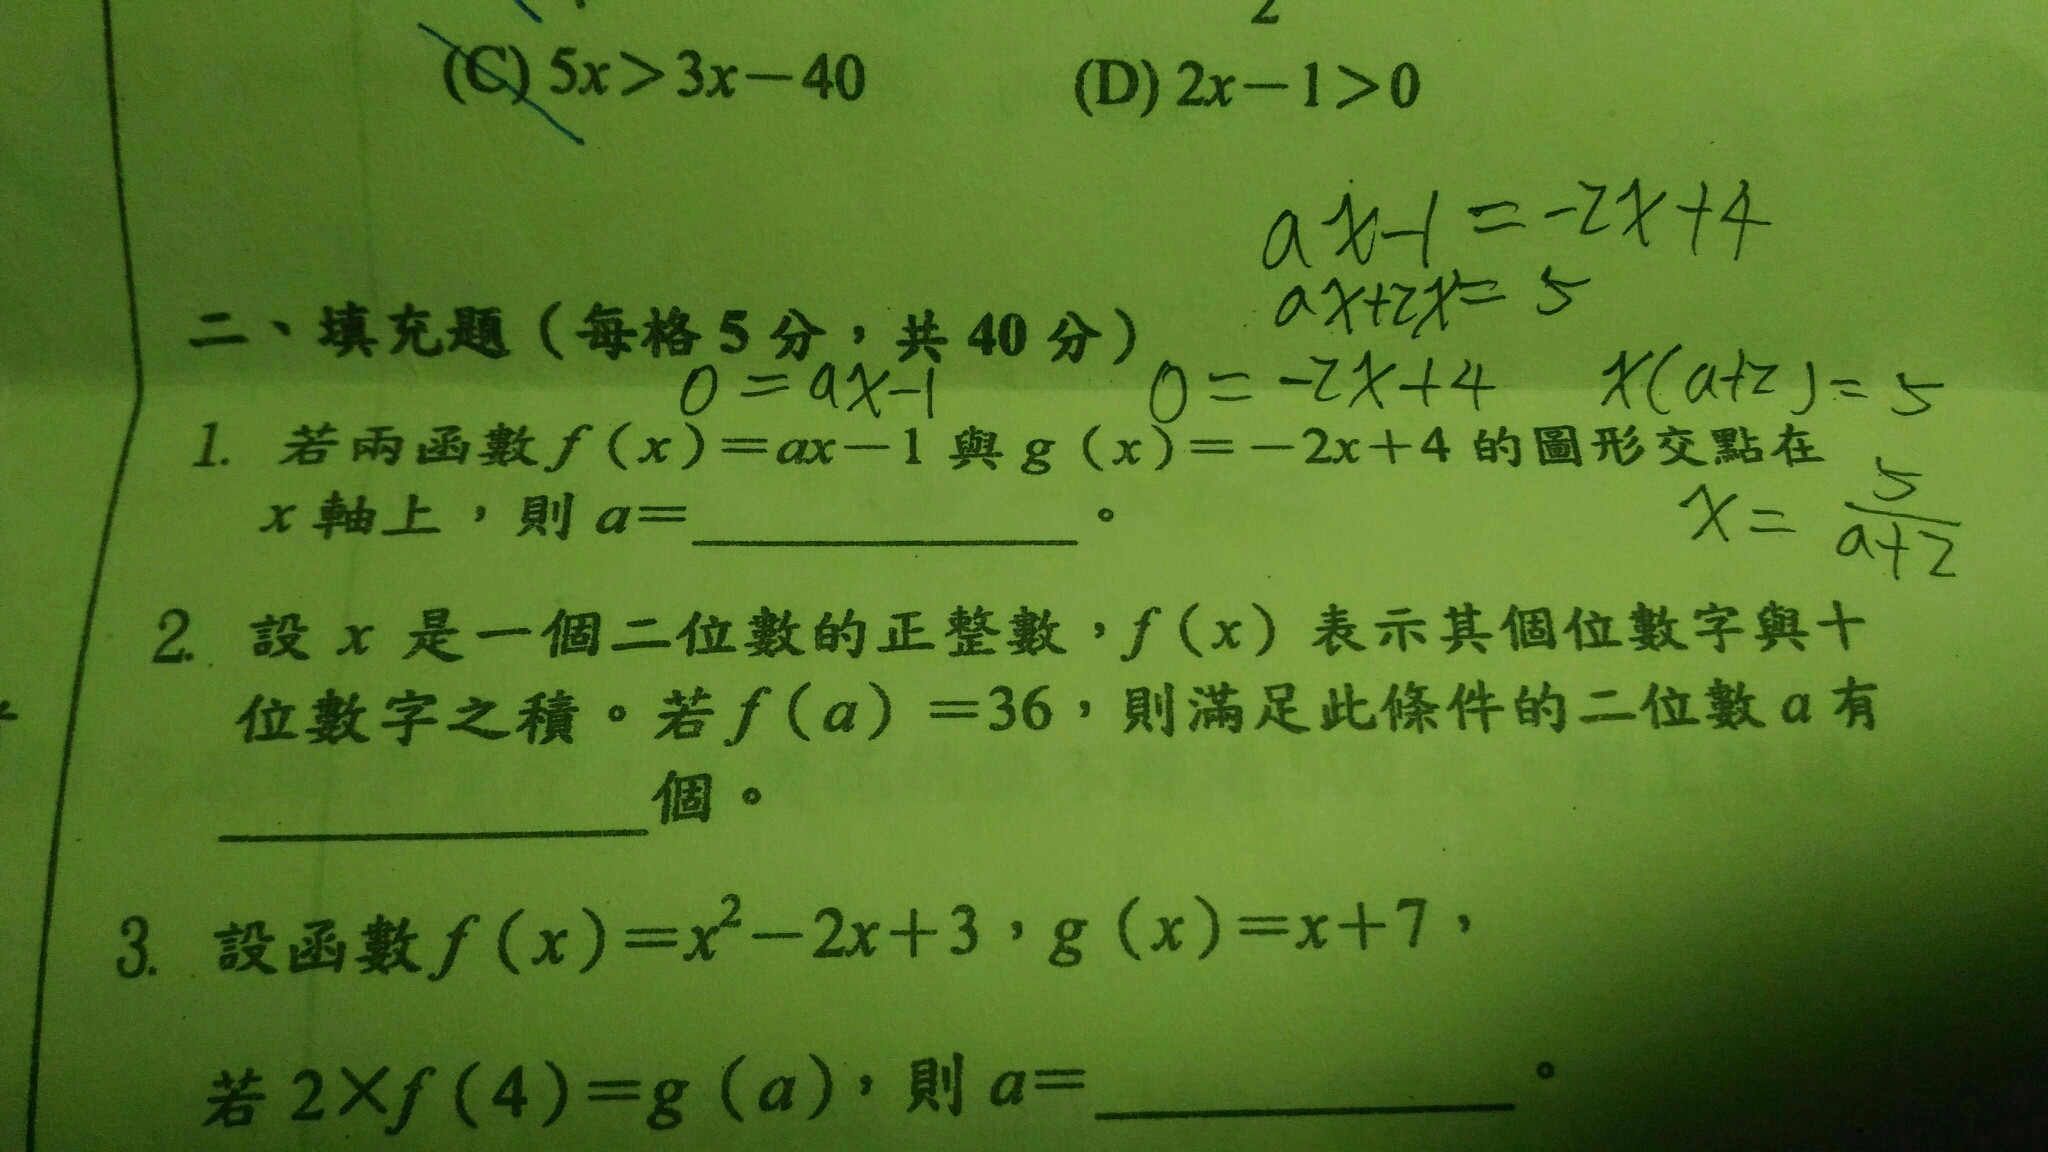 (C) 5x＞3x－40 (D) 2x－1＞0
ax-1=-2x+4
ax+2x=5
二、填充題（每格5分，共40分）
0=ax-1 0=-2x+4 x(a+2)=5
1. 若兩函數f(x)＝ax－1與g(x)＝－2x＋4的圖形交點在
x軸上，則a＝__________。
x=5/(a+2)
2. 設x是一個二位數的正整數，f(x)表示其個位數字與十
位數字之積。若f(a)＝36，則滿足此條件的二位數a有
__________個。
3. 設函數f(x)＝x²－2x＋3，g(x)＝x＋7，
若2×f(4)＝g(a)，則a＝__________。